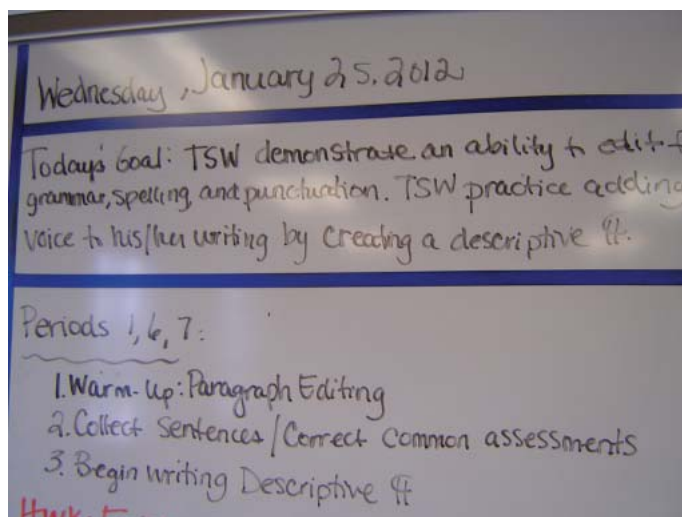 Wednesday, January 25. 2012
Today's Goal: TSW demonstrate an ability to edit f
grammar, spelling, and punctuation. TSW practice adding
voice to his/her writing by creating a descriptive ¶.
Periods 1, 6, 7:
1. Warm-Up: Paragraph Editing
2. Collect Sentences/Correct common assessments
3. Begin writing Descriptive ¶